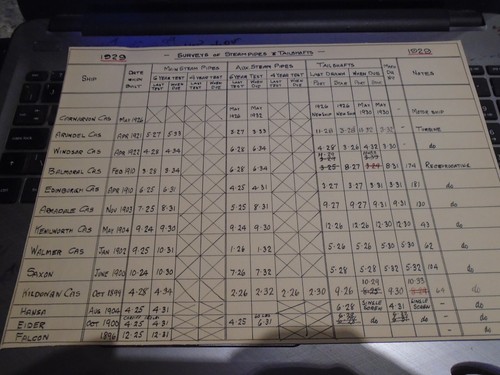 1929 - SURVEYS OF STEAMPIPES & TAILSHAFTS - 1929
SHIP DATE WHEN BUILT MAIN STEAM PIPES AUX. STEAM PIPES TAILSHAFTS NOTES
6 YEAR TEST 4 YEAR TEST 6 YEAR TEST 4 YEAR TEST LAST DRAWN WHEN DUE
LAST TEST WHEN DUE LAST TEST WHEN DUE LAST TEST WHEN DUE LAST TEST WHEN DUE PORT STBD PORT STBD
CARNARVON CAS MAY 1926 MAY 1926 MAY 1932 1926 NEW SHIP 1926 NEW SHIP MAY 1930 MAY 1930 - MOTOR SHIP
ARUNDEL CAS APR 1921 5-27 5-33 3-27 3-33 11-26 3-28 - TURBINE
WINDSOR CAS APR 1922 4-28 4-34 6-28 6-34 4-28 3-26 4-32 3-30 - do
BALMORAL CAS FEB 1910 3-28 3-34 6-28 6-34 8-27 8-31 174 RECIPROCATING
EDINBURGH CAS APR 1910 6-25 6-31 4-25 4-31 3-27 3-27 3-31 3-31 181 do
ARMADALE CAS NOV 1903 7-25 8-31 5-25 8-31 9-27 9-27 9-31 9-31 130 do
KENILWORTH CAS MAY 1904 9-24 9-30 9-24 9-30 12-26 12-26 12-30 12-30 93 do
WALMER CAS JAN 1902 9-25 10-31 1-26 1-32 5-26 5-26 5-30 5-30 62 do
SAXON JUNE 1900 10-24 10-30 7-26 7-32 5-28 5-28 5-32 5-32 104 do
KILDONAN CAS OCT 1899 4-28 4-34 2-26 2-32 2-26 2-30 9-26 10-29 9-30 10-33 do
HANSA AUG 1904 4-25 4-31 6-28 SINGLE SCREW 4-31 SINGLE SCREW - do
EIDER OCT 1900 4-25 4-31 4-25 6-31 do do - do
FALCON 1896 12-25 12-31 - do